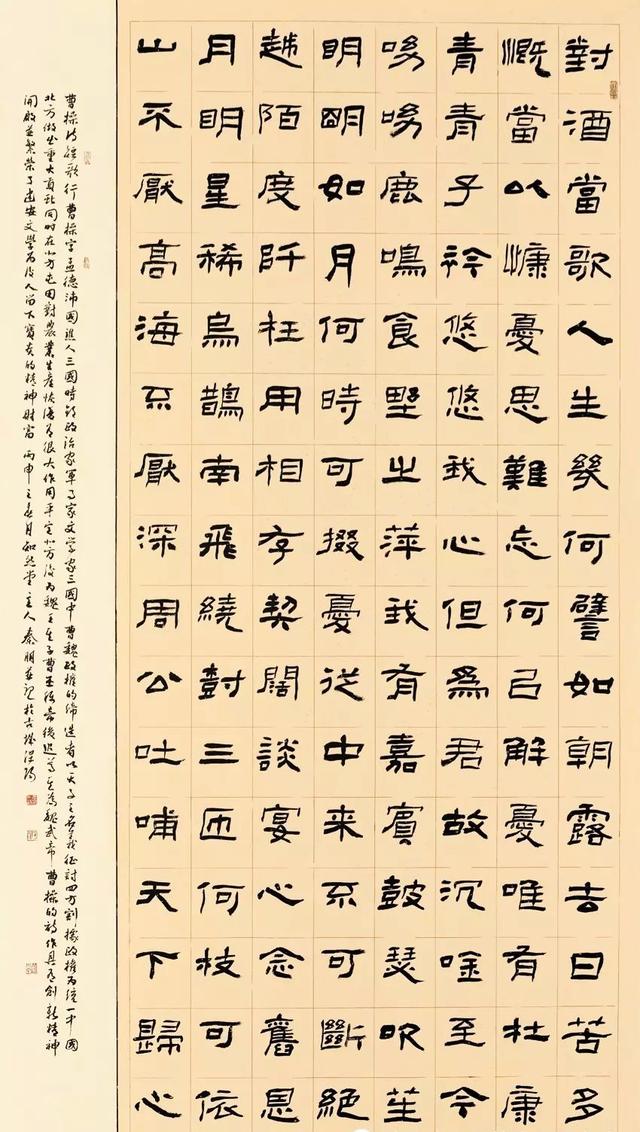 對酒當歌人生幾何譬如朝露去日苦多
慨當以慷憂思難忘何以解憂唯有杜康
青青子衿悠悠我心但為君故沉吟至今
呦呦鹿鳴食野之萍我有嘉賓鼓瑟吹笙
明明如月何時可掇憂從中来不可斷絕
越陌度阡枉用相存契闊談宴心念舊恩
月明星稀烏鵲南飛繞樹三匝何枝可依
山不厭高海不厭深周公吐哺天下歸心
曹操詩短歌行曹操字孟德沛國譙人三國時期政治家軍事家文學家三國中曹魏政權的締造者以天子之名義征討四方割據政權為統一中國
北方做出重大貢獻同時在北方屯田對農業生產恢復有很大作用平定北方後為魏王其子曹丕稱帝後追尊其為魏武帝曹操的詩作具有創新精神
開啟並繁榮了建安文學為後人留下寶貴的精神財富丙申之春月堂主人秦朋並記於古